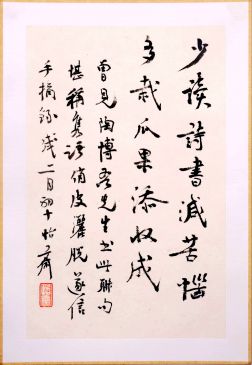 少读诗书减苦恼
多栽瓜果添收成
曾见陶博吾先生书此联句
堪称隽语俏皮洒脱遂信
手摘录 二月初十怡斋